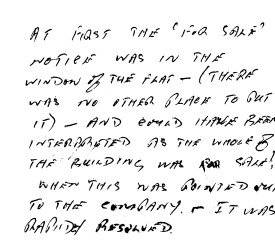 AT FIRST THE "FOR SALE"
NOTICE WAS IN THE
WINDOW OF THE FLAT - (THERE
WAS NO OTHER PLACE TO PUT
IT) - AND COULD HAVE BEEN
INTERPRETED AS THE WHOLE OF
THE BUILDING WAS FOR SALE!
WHEN THIS WAS POINTED OUT
TO THE COMPANY. - IT WAS
RAPIDLY RESOLVED.